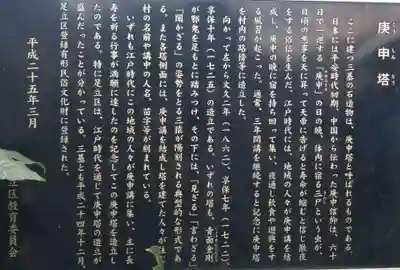 庚申塔
こうしんとう
ここに建つ三基の石造物は、庚申塔と呼ばれるものである。
日本には平安時代初期、中国から伝わった庚申信仰は、六十
日で一巡する「庚申」の日の晩、体内に宿る三尸という虫が、
日頃の悪事を天に昇って天帝に告げると寿命が縮むと信じ徹夜
をする俗信を生んだ。江戸時代には、地域の人々が庚申講を結
成し、庚申の晩に宿を持ち回って集い、夜通し飲食や遊興をす
る風習が起こった。通常、三年間講を継続すると記念に庚申塔
を村内の路傍等に造立した。
向かって左から文久二年(一八六二)、享保七年(一七二二)、
享保十年(一七二五)の造立である。いずれの塔も、青面金剛
が邪鬼を足もとに踏みつけ、その下には、「見ざる」「言わざる」
「聞かざる」の姿勢をとる三猿が陽刻される典型的な形式であ
る。また各塔側面には、庚申講を結成し塔を建てた人々が住む
村の名前や講中の人名、苗字等が刻まれている。
いずれも江戸時代にこの地域の人々が庚申講に集い、主に長
寿を祈る行事が満願に達したのを記念してこの庚申塔を造立し
たのである。特に足立区は、江戸時代を通じて庚申塔の造立が
盛んだったことが分かっている。三基とも平成二十四年十二月、
足立区登録有形民俗文化財に登録された。
平成二十五年三月
立区教育委員会